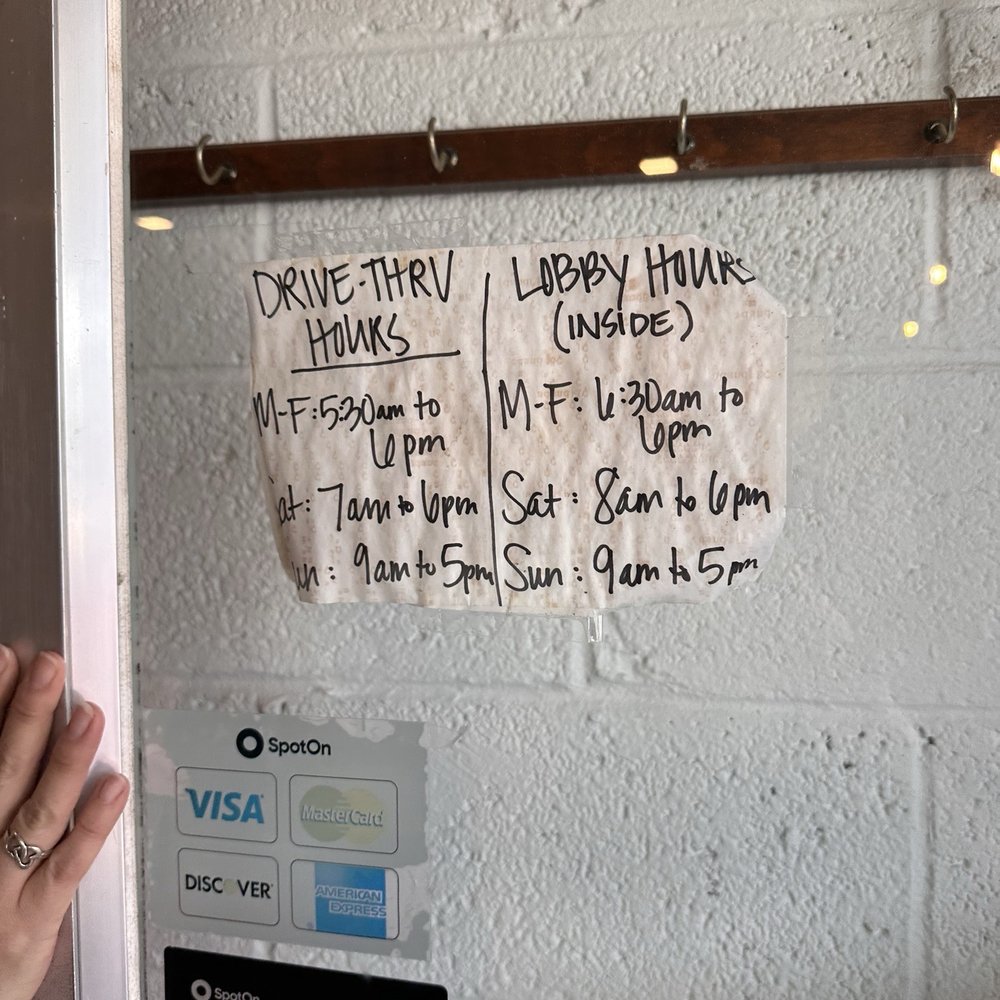 DRIVE-THRU
HOURS
M-F: 5:30am to
6pm
Sat: 7am to 6pm
Sun: 9am to 5pm
LOBBY HOURS
(INSIDE)
M-F: 6:30am to
6pm
Sat: 8am to 6pm
Sun: 9am to 5pm
SpotOn
VISA
MasterCard
DISCOVER
AMERICAN
EXPRESS
SpotOn